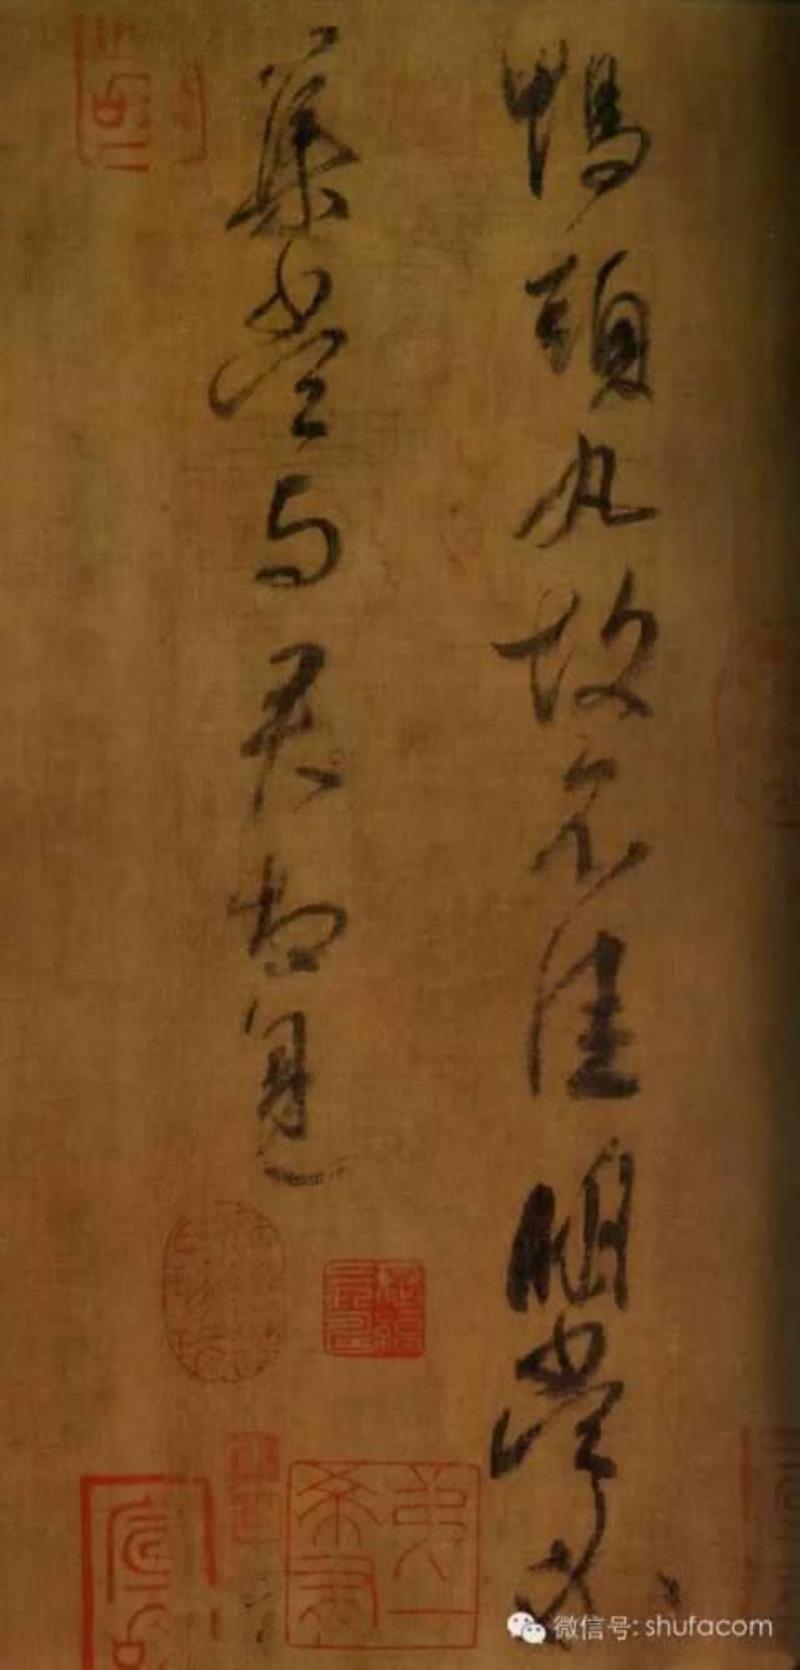 鸭頭丸故不佳明當必
集當與君相見
第一希有
微信号: shufacom